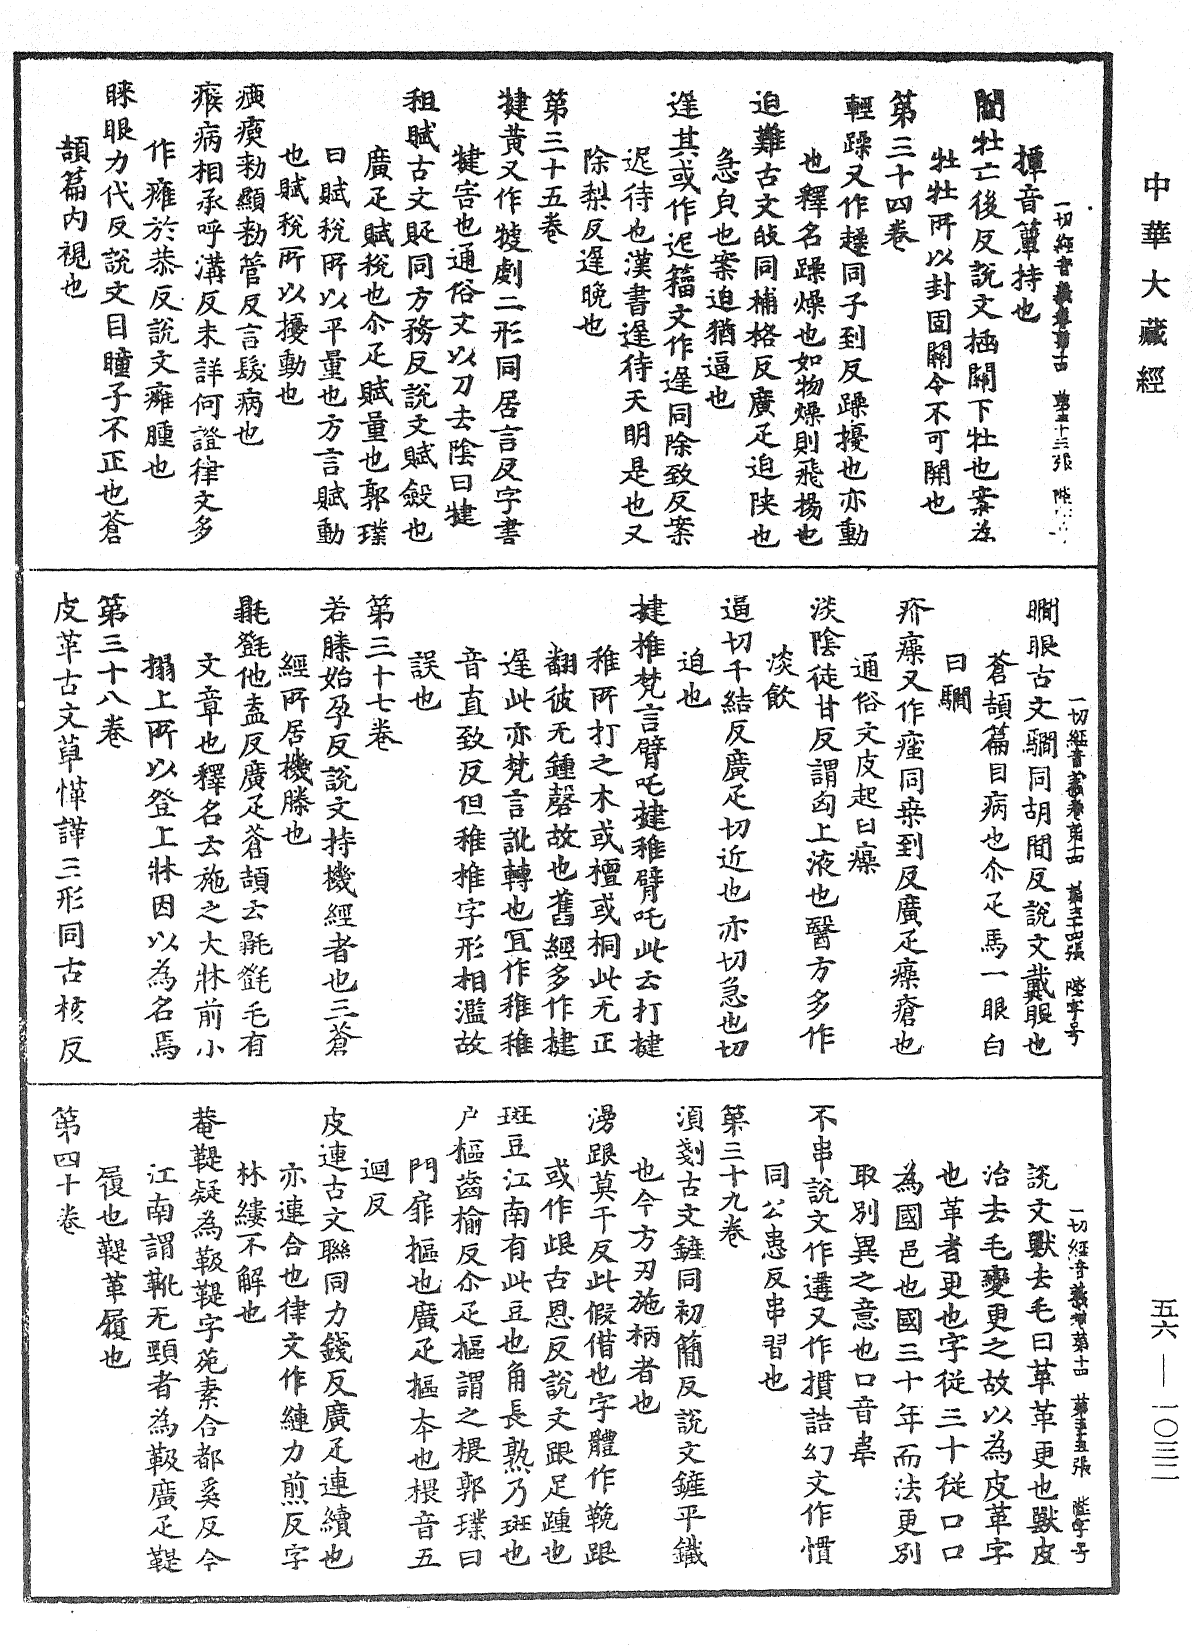 中華大藏經
一切經音義卷第十四 第五十三張 陞字号
揮音簞持也
闟牡亡後反說文插關下牡也案在
牡牡所以封固關令不可開也
第三十四卷
輕躁又作趮同子到反躁擾也亦動
也釋名躁燥也如物燥則飛揚也
迫難古文敀同補格反廣疋迫陜也
急皃也案迫猶逼也
遟其或作迡籀文作遲同除致反案
迟待也漢書遟待天明是也又
除梨反遟晚也
第三十五卷
犍黃又作㹇劇二形同居言反字書
犍害也通俗文以刀去陰曰犍
租賦古文䝯同方務反說文賦斂也
廣疋賦稅也尒疋賦量也郭璞
曰賦稅所以平量也方言賦動
也賦稅所以擾動也
癲瘨勑顯勑管反言髮病也
瘊病相承呼溝反未詳何證律文多
作癰於恭反說文癰腫也
睞眼力代反說文目瞳子不正也蒼
頡篇內視也
一切經音義卷第十四 第五十四張 陞字号
瞷眼古文騆同胡閒反說文戴眼也
蒼頡篇目病也尒疋馬一眼白
曰騆
疥瘙又作瘥同桒到反廣疋瘙瘡也
通俗文皮起曰瘙
淡陰徒甘反謂匈上液也醫方多作
淡飲
逼切千結反廣疋切近也亦切急也切
迫也
揵椎梵言臂吒揵稚臂吒此云打揵
稚所打之木或檀或桐此无正
翻彼无鍾磬故也舊經多作揵
遟此亦梵言訛轉也冝作稚稚
音直致反但稚椎字形相濫故
誤也
第三十七卷
若縢始孕反說文持機經者也三蒼
經所居機縢也
毾㲪他盍反廣疋蒼頡云毾㲪毛有
文章也釋名云施之大牀前小
搨上所以登上牀因以為名焉
第三十八卷
皮革古文䓬愅諽三形同古核反
一切經音義卷第十四 第五十五張 陞字号
說文獸去毛曰革革更也獸皮
治去毛變更之故以為皮革字
也革者更也字從三十從口口
為國邑也國三十年而法更別
取別異之意也口音韋
不串說文作遦又作摜詁幻文作慣
同公患反串習也
第三十九卷
湏剗古文鏟同初簡反說文鏟平鐵
也今方刃施柄者也
湧跟莫干反此假借也字體作鞔跟
或作䟴古恩反說文跟足踵也
斑豆江南有此豆也角長熟乃斑也
戶樞齒榆反尒疋樞謂之椳郭璞曰
門扉摳也廣疋樞夲也椳音五
迴反
皮連古文聯同力錢反廣疋連續也
亦連合也律文作縺力煎反字
林縷不解也
菴鞮疑為靸鞮字菀素合都奚反今
江南謂靴无頸者為靸廣疋鞮
履也鞮革履也
第四十卷
五六—一〇三二